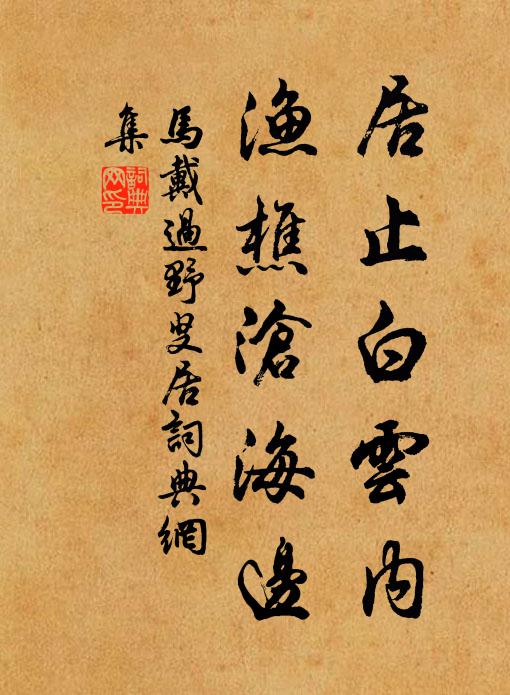 居止白雲内
漁樵滄海邊
馬戴過野叟居詞典網
集
詞典
网印